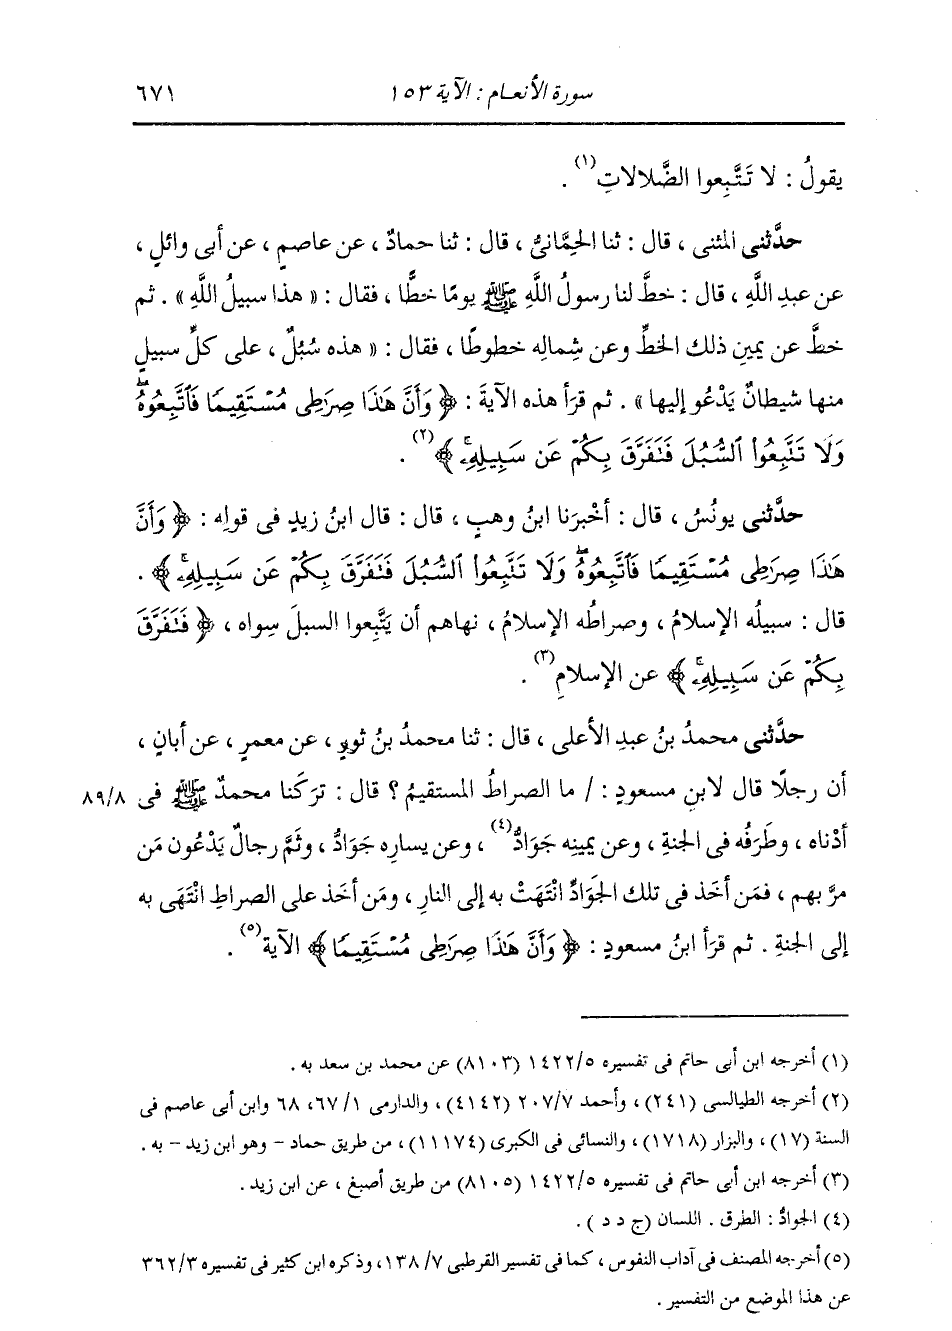 سورة الأنعام : الآية ١٥٣ ٦٧١
يقولُ : لا تَتَّبِعوا الضَّلالاتِ(١) .
حدَّثنى المثنى ، قال : ثنا الحِمَّانىُّ ، قال : ثنا حمادٌ ، عن عاصمٍ ، عن أبى وائلٍ ،
عن عبدِ اللَّهِ ، قال : خطَّ لنا رسولُ اللَّهِ ﷺ يومًا خطًّا ، فقال : « هذا سبيلُ اللَّهِ » . ثم
خطَّ عن يمينِ ذلك الخطِّ وعن شمالِه خطوطًا ، فقال : « هذه سُبُلٌ ، على كلِّ سبيلٍ
منها شيطانٌ يَدْعُو إليها » . ثم قرَأ هذه الآيةَ : ﴿ وَأَنَّ هَٰذَا صِرَٰطِى مُسْتَقِيمًا فَٱتَّبِعُوهُۖ
وَلَا تَتَّبِعُوا۟ ٱلسُّبُلَ فَتَفَرَّقَ بِكُمْ عَن سَبِيلِهِۦۚ ﴾(٢) .
حدَّثنى يونُسُ ، قال : أخْبرَنا ابنُ وهبٍ ، قال : قال ابنُ زيدٍ فى قولِه : ﴿ وَأَنَّ
هَٰذَا صِرَٰطِى مُسْتَقِيمًا فَٱتَّبِعُوهُۖ وَلَا تَتَّبِعُوا۟ ٱلسُّبُلَ فَتَفَرَّقَ بِكُمْ عَن سَبِيلِهِۦۚ ﴾ .
قال : سبيلُه الإسلامُ ، وصراطُه الإسلامُ ، نهاهم أن يَتَّبِعوا السبلَ سِواه ، ﴿ فَتَفَرَّقَ
بِكُمْ عَن سَبِيلِهِۦۚ ﴾ عن الإسلامِ(٣) .
حدَّثنى محمدُ بنُ عبدِ الأعلى ، قال : ثنا محمدُ بنُ ثورٍ ، عن معمرٍ ، عن أبانٍ ،
أن رجلًا قال لابنِ مسعودٍ : / ما الصراطُ المستقيمُ ؟ قال : ترَكَنا محمدٌ ﷺ فى ٨٩/٨
أدْناه ، وطَرَفُه فى الجنةِ ، وعن يمينِه جَوَادُّ(٤) ، وعن يسارِه جَوَادُّ ، وثَمَّ رجالٌ يَدْعُون مَن
مرَّ بهم ، فمَن أخَذ فى تلك الجَوَادِّ انْتَهَتْ به إلى النارِ ، ومَن أخَذ على الصراطِ انْتَهَى به
إلى الجنةِ . ثم قرَأ ابنُ مسعودٍ : ﴿ وَأَنَّ هَٰذَا صِرَٰطِى مُسْتَقِيمًا ﴾ الآية(٥) .
(١) أخرجه ابن أبى حاتم فى تفسيره ١٤٢٢/٥ (٨١٠٣) عن محمد بن سعد به .
(٢) أخرجه الطيالسى (٢٤١) ، وأحمد ٢٠٧/٧ (٤١٤٢) ، والدارمى ٦٧/١، ٦٨ وابن أبى عاصم فى
السنة (١٧) ، والبزار (١٧١٨) ، والنسائى فى الكبرى (١١١٧٤) ، من طريق حماد - وهو ابن زيد - به .
(٣) أخرجه ابن أبى حاتم فى تفسيره ١٤٢٢/٥ (٨١٠٥) من طريق أصبغ ، عن ابن زيد .
(٤) الجوادُّ : الطرق . اللسان (ج د د ) .
(٥) أخرجه المصنف فى آداب النفوس ، كما فى تفسير القرطبى ١٣٨/٧، وذكره ابن كثير فى تفسيره ٣٦٢/٣
عن هذا الموضع من التفسير .